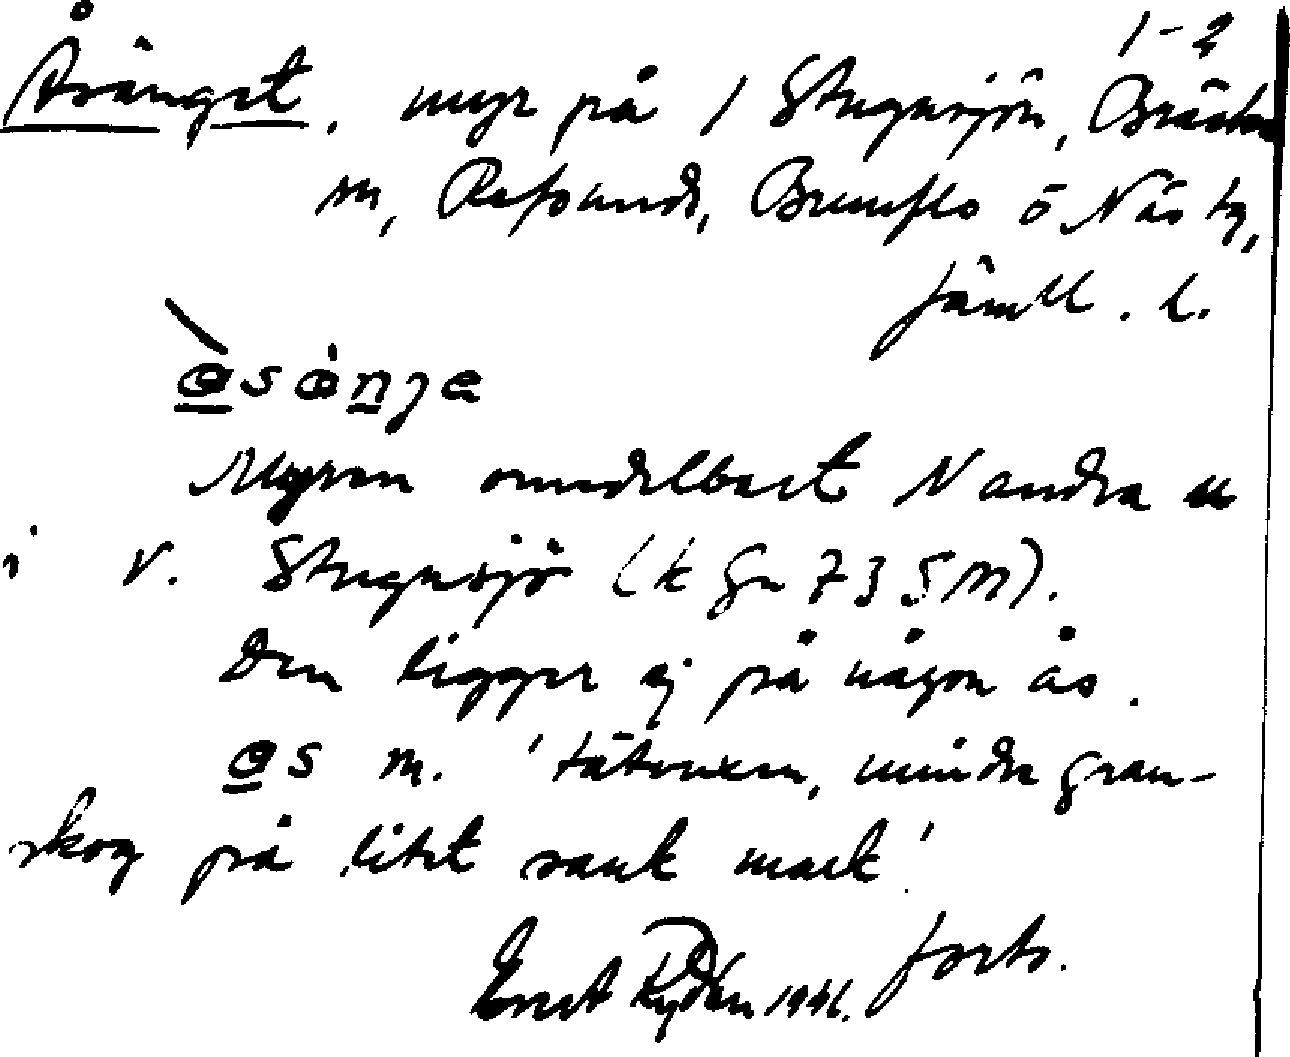 1-2
Åsänget, myr på 1 Stugusjön, Bräcke
sn, Refsunds, Brunflo o Näs tg,
Jämtl. l.
Myren omedelbart N andra u
i V. Stugusjö (k gr 735 M).
Den ligger ej på någon ås.
as m. 'tätvuxen, mindre gran-
skog på litet sank mark'
forts.
Ernst Rydén 1941.